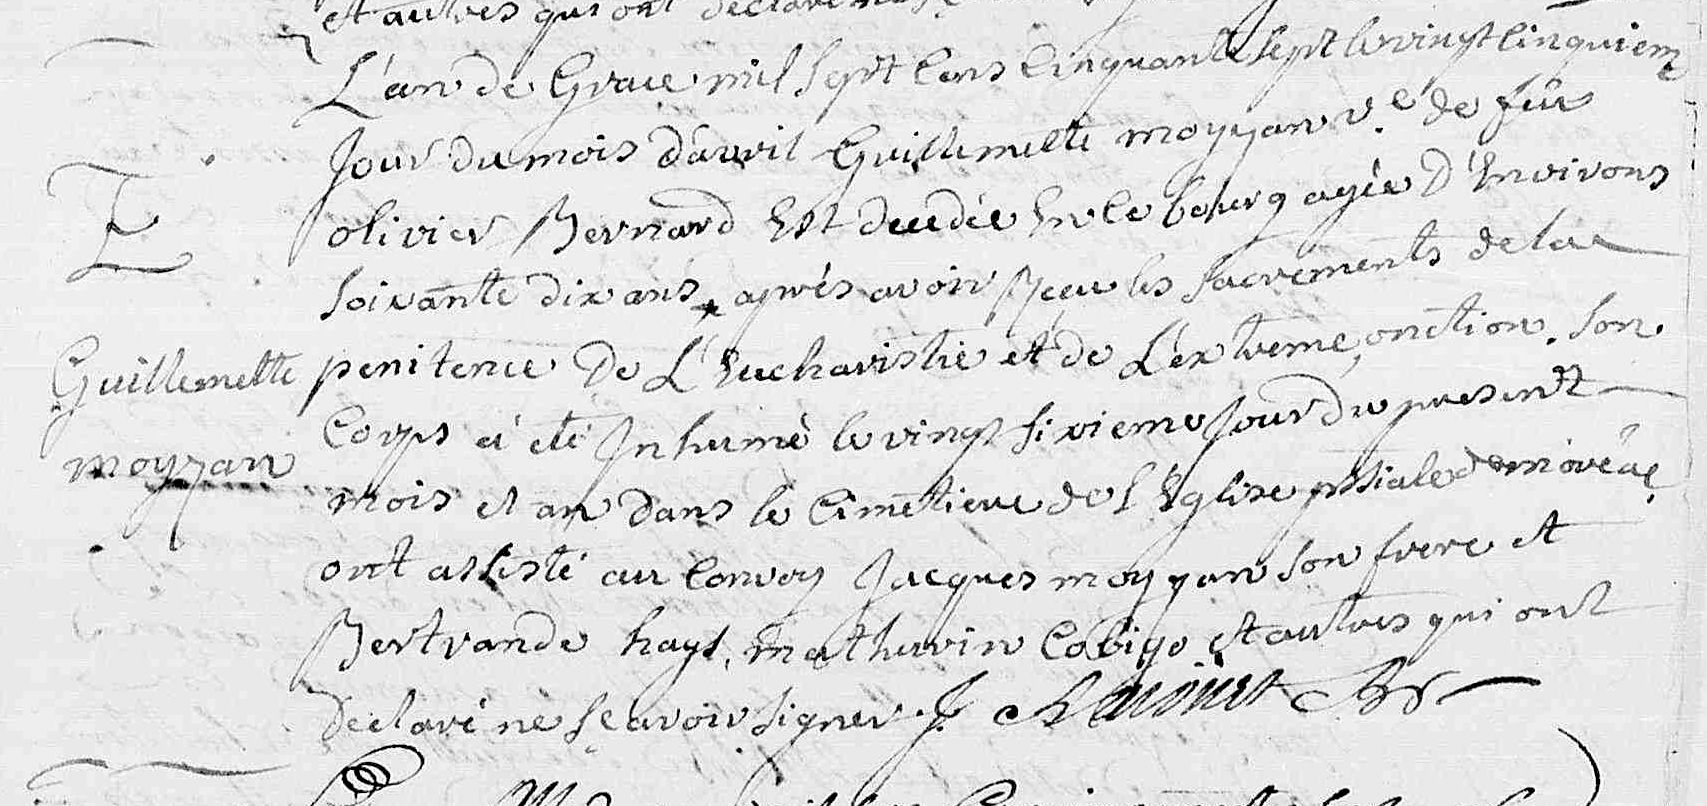 et autres qui ont
L'an de Grace mil sept Cens Cinquante sept le vingt Cinquiem
Jour du mois d'avril Guillemette moyzan v.e de feu
olivier Bernard Est decedée En le bourg agée D'Environs
soixante dix ans, aprés avoir Reçu les sacrements de la
Guillemette
penitence De L'Eucharistie et de L'extreme, onction. son
Corps á eté Jnhumé le vingt sixieme Jour du present
moyzan
mois et an dans le Cimetiere de l'Eglise pssiale de
ont assisté au Convoy Jacques moyzan son frere et
Bertrande hays, mathurin Cobigo et autres qui ont
declaré ne sçavoir signer. J.